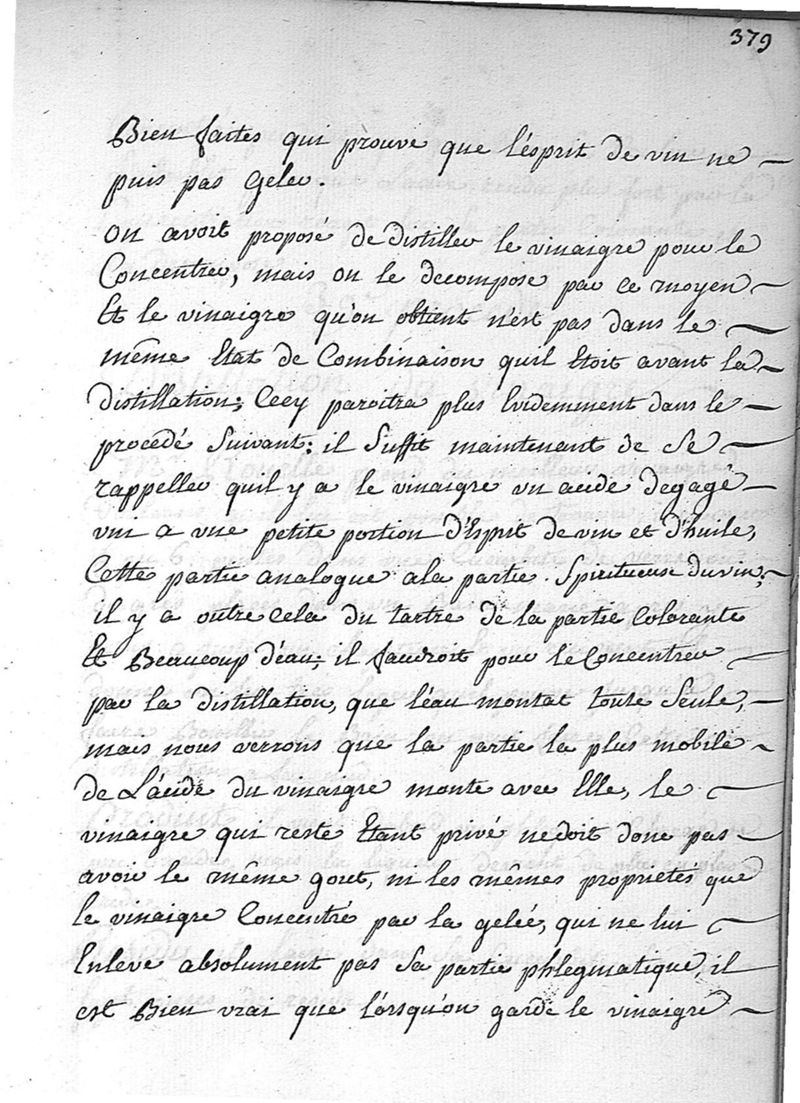 379
Bien faites qui prouve que l'ésprit de vin ne
puis pas geler.
on avoit proposé de distiller le vinaigre pour le
Concentrer, mais on le decompose par ce moyen
Et le vinaigre qu'on obtient n'est pas dans le
même Etat de Combinaison quil Etoit avant la
distillation; Cecy paroitra plus Evidemment dans le
procedé Suivant; il Suffit maintenant de Se
rappeller quil y a le vinaigre un acide degagé
uni a une petite portion d'Esprit de vin et d'huile,
Cette partie analogue a la partie Spiritueuse du vin,
il y a outre cela du tartre de la partie Colorante
Et Beaucoup d'eau; il faudroit pour le Concentrer
par la distillation, que l'éau montat toute Seule,
mais nous verrons que la partie la plus mobile
de L'ácide du vinaigre monte avec Elle, le
vinaigre qui reste Etant privé ne doit donc pas
avoir le même gout, ni les mêmes proprietés que
le vinaigre Concentré par la gelée, qui ne lui
Enleve absolument pas Sa partie phlegmatique, il
est Bien vrai que lórsqu'on garde le vinaigre